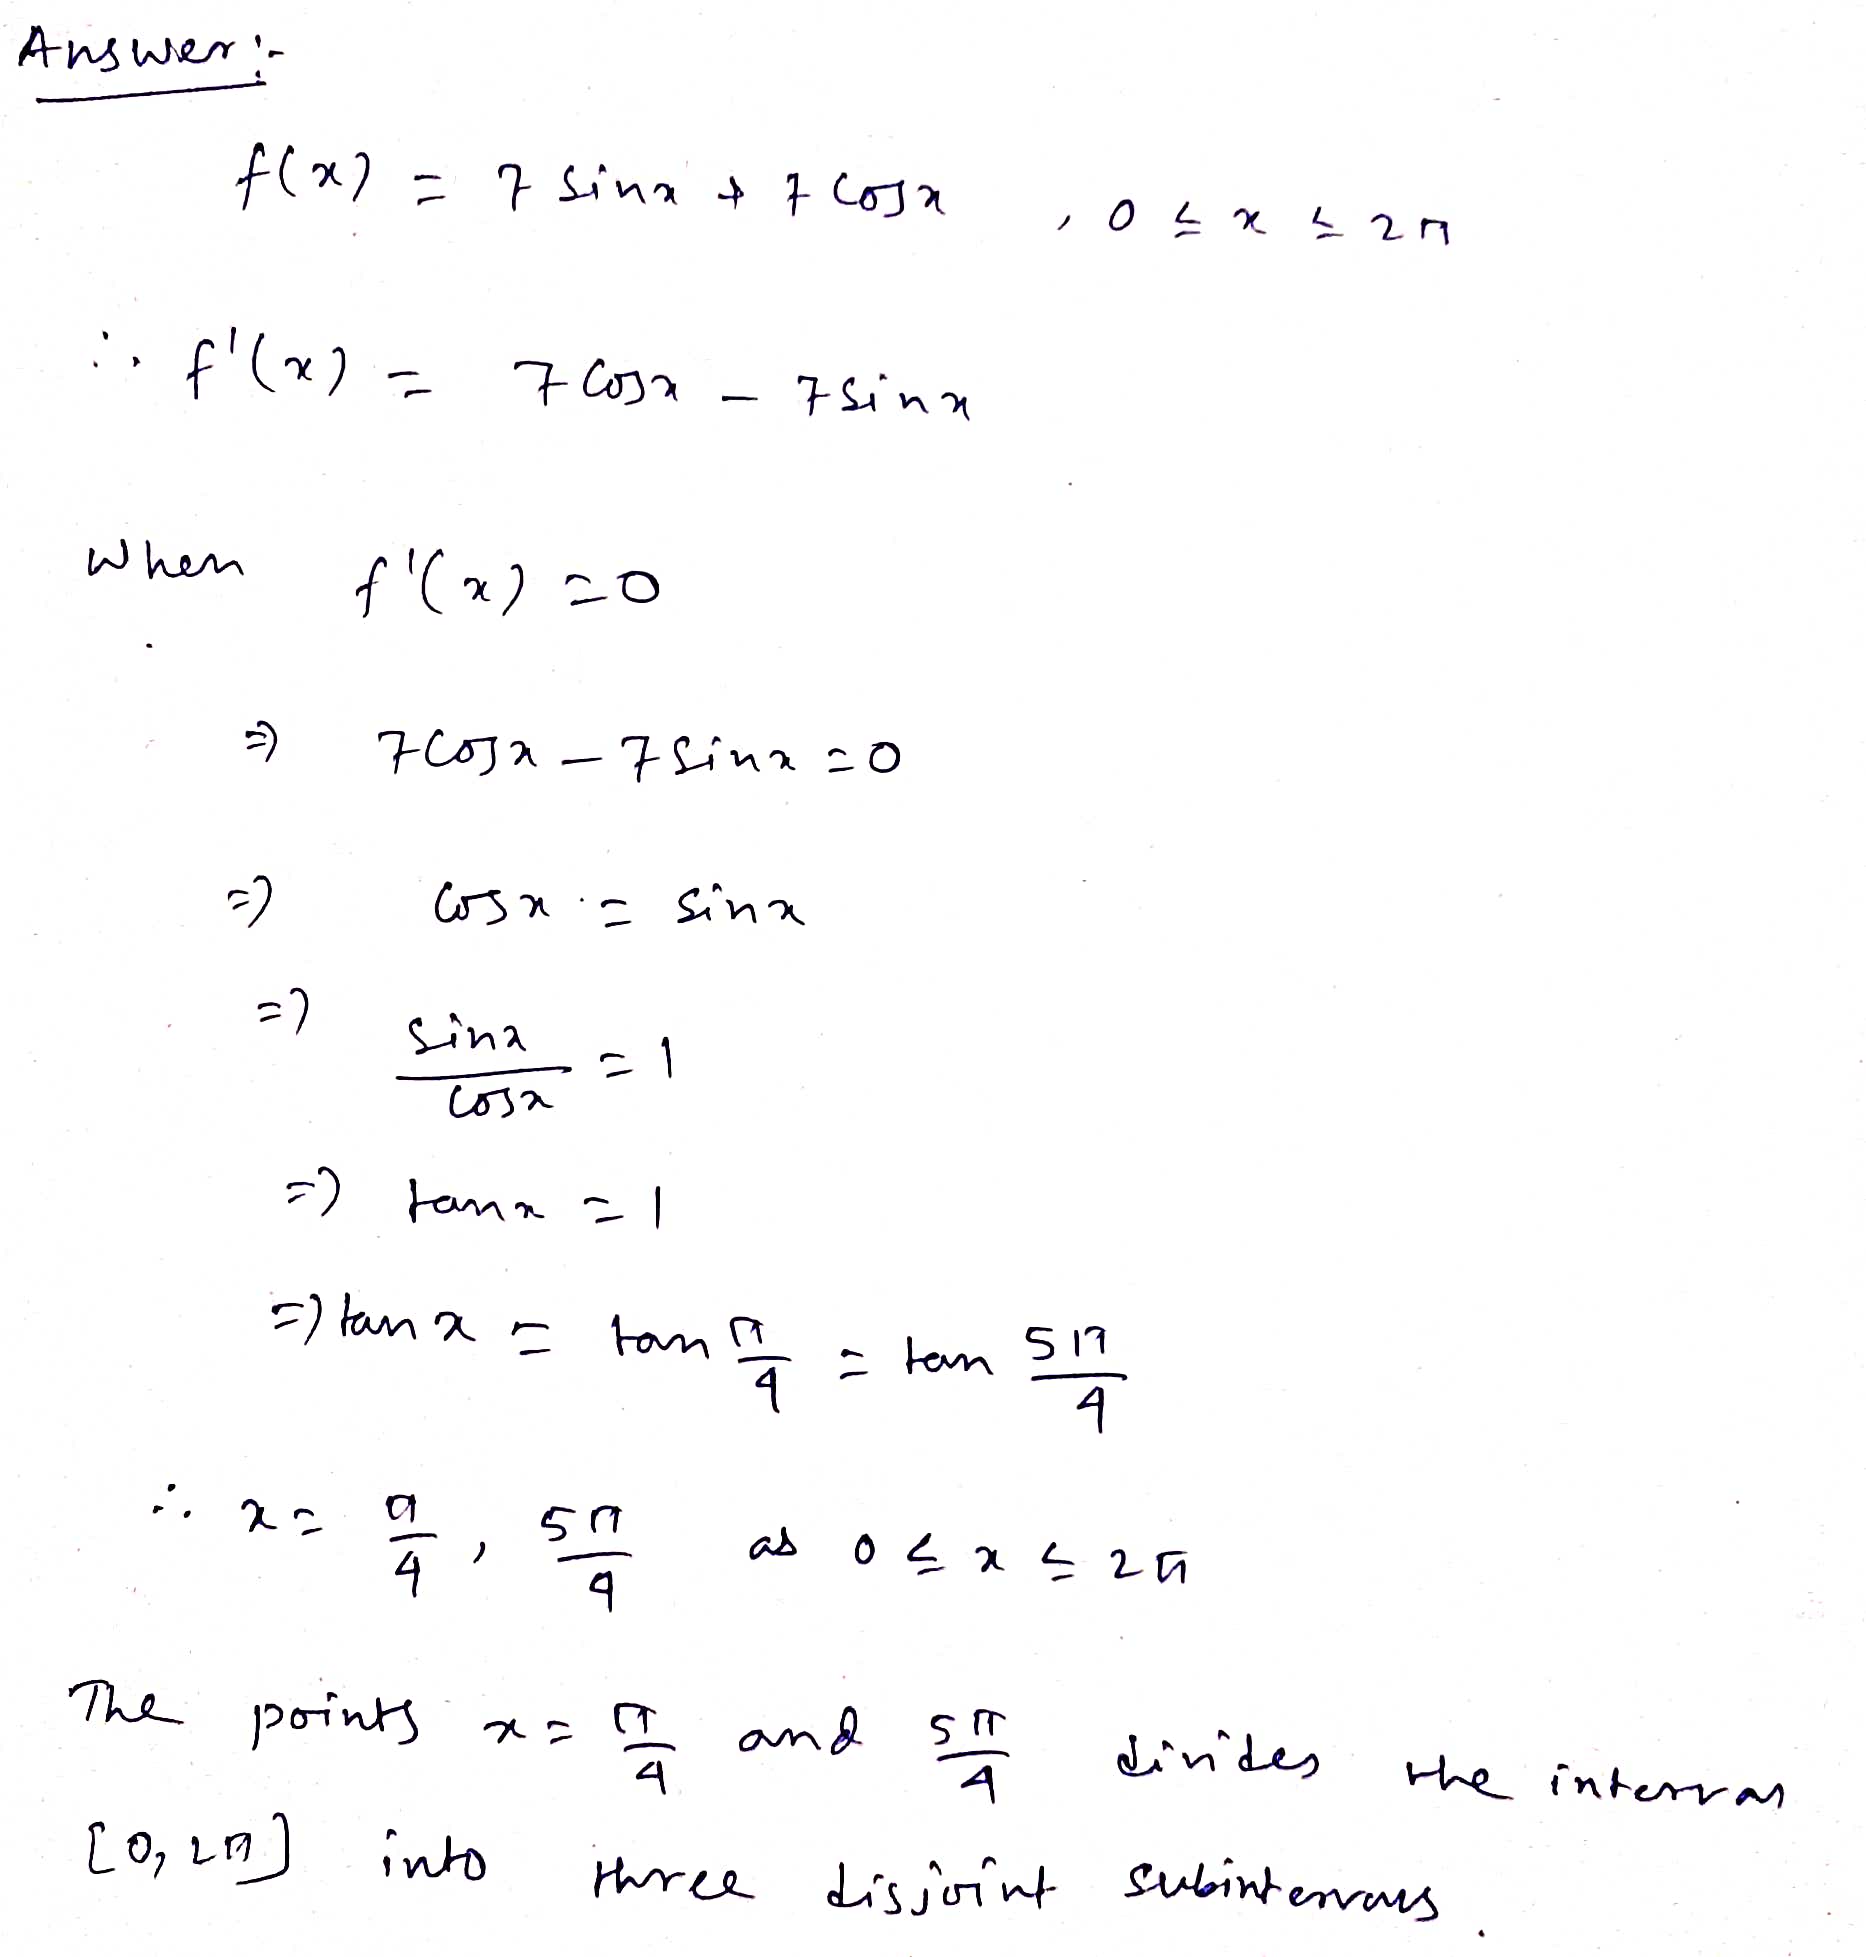 Answer :-
f(x) = 7 sinx + 7 cosx , 0 ≤ x ≤ 2π
∴ f'(x) = 7 cosx - 7 sinx
when f'(x) = 0
⇒ 7 cosx - 7 sinx = 0
⇒ cosx = sinx
⇒ sinx/cosx = 1
⇒ tanx = 1
⇒ tanx = tan π/4 = tan 5π/4
∴ x = π/4 , 5π/4 as 0 ≤ x ≤ 2π
The points x = π/4 and 5π/4 divides the interval
[0, 2π] into three disjoint subintervals.